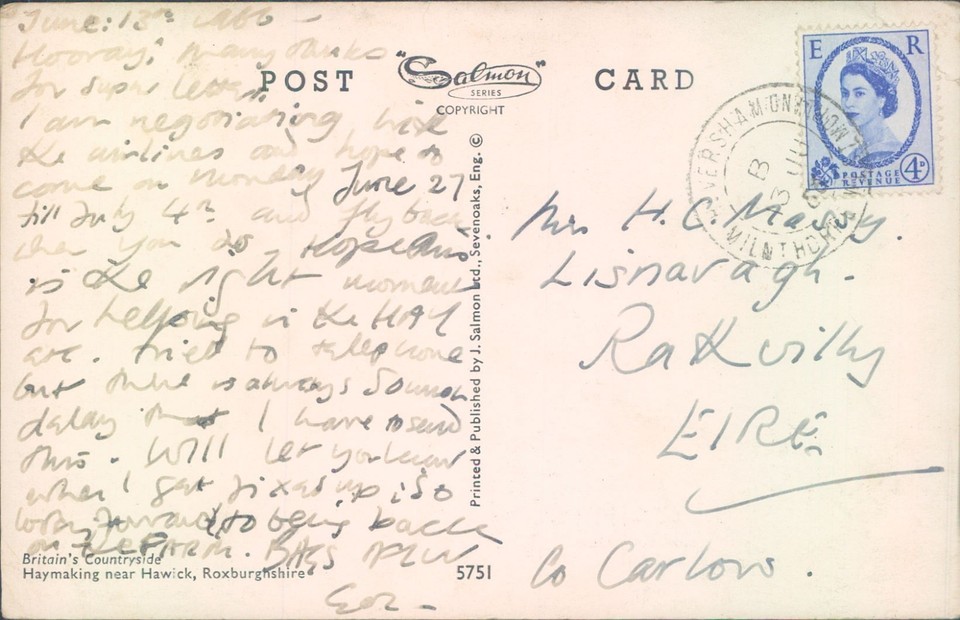 June: 13th 1966 –
Hooray! Many thanks
for super letter.
I am negotiating with
the airlines and hope to
come on Monday June 27
till July 4th and fly back
when you do. Hope this
is the right moment
for helping in the HAY
etc. Tried to telephone
but there is always so much
delay that I have to send
this. Will let you know
when I get fixed up. So
looking forward to being back
on the FARM.
"Salmon"
SERIES
POST CARD
COPYRIGHT
Printed & Published by J. Salmon Ltd., Sevenoaks, Eng. ©
Britain's Countryside
Haymaking near Hawick, Roxburghshire
5751
E R
POSTAGE
REVENUE
4D
MILNTHORPE
B
H. C.
Lisnavagh.
Rathvilly
EIRE.
Co Carlow.